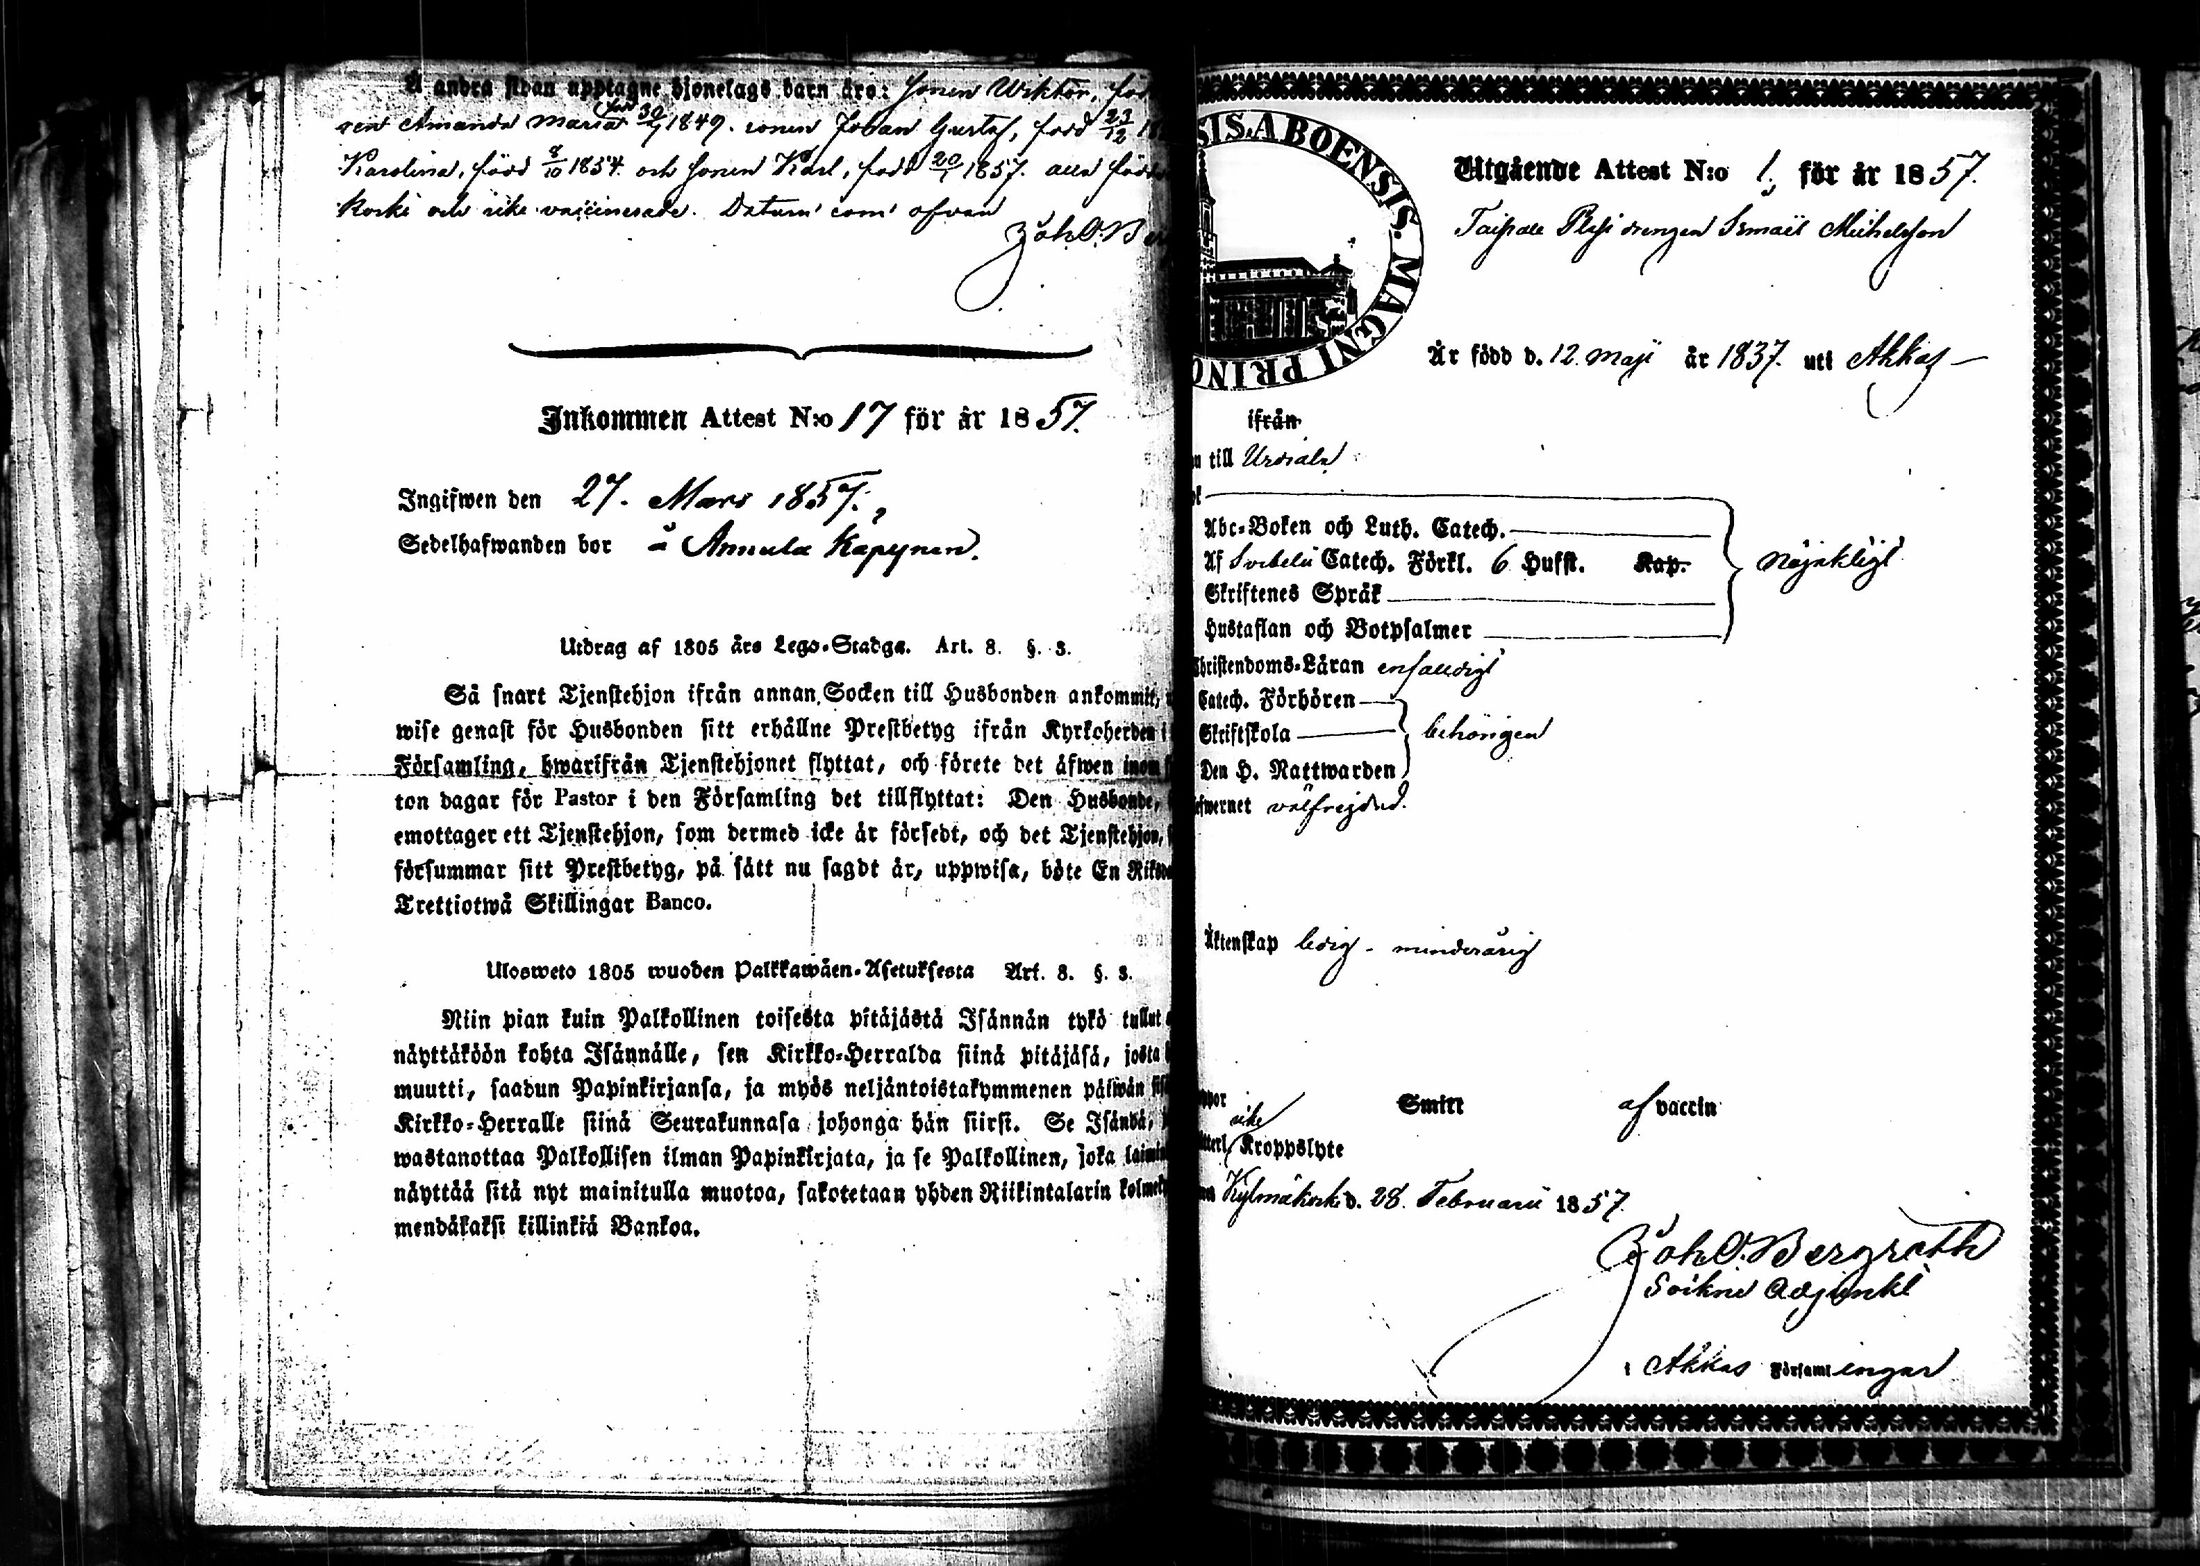 å andra sidan upptagne hjonelags barn äro: sonen Wiktor, född
Amanda Maria 1849. sonen Johan Gustaf, född 23/12
Karolina, född 8/10 1854. och sonen Karl, född 20/1 1857. alla födde
koski och icke vaccinerade. Datum som ofvan
Joh. O. Be
Inkommen Attest N:o 17 för år 1857.
Ingifwen den 27. Mars 1857.
Sedelhafwanden bor å Annula Kapynen.
Utdrag af 1805 års Lego-Stadga. Art. 8. §. 3.
Så snart Tjenstehjon ifrån annan Socken till Husbonden ankommit,
wise genast för Husbonden sitt erhållne Prestbetyg ifrån Kyrkoherden i
Församling, hwarifrån Tjenstehjonet flyttat, och förete det äfwen inom
ton dagar för Pastor i den Församling det tillflyttat: Den Husbonde,
emottager ett Tjenstehjon, som dermed icke är försedt, och det Tjenstehjon,
försummar sitt Prestbetyg, på sätt nu sagdt är, uppwisa, böte En Riksda
Trettiotwå Skillingar Banco.
Ulosweto 1805 wuoden Palkkawäen-Asetuksesta Art. 8. §. 3.
Niin pian kuin Palkollinen toisesta pitäjästä Isännän tykö tullut
näyttäköön kohta Isännälle, sen Kirkko-Herralda siinä pitäjäsä, josta
muutti, saadun Papinkirjansa, ja myös neljäntoistakymmenen päiwän sis
Kirkko-Herralle siinä Seurakunnasa johonga hän siirsi. Se Isändä,
wastanottaa Palkollisen ilman Papinkirjata, ja se Palkollinen, joka laimin
näyttää sitä nyt mainitulla muotoa, sakotetaan yhden Riikintalarin kolmek
mendäkaksi killinkiä Bankoa.
SIS. ABOENSIS. MAGNI PRINC
Utgående Attest N:o 1. för år 1857.
Taipale Plaji drengen Ismaël Michelsson
Är född d. 12. Maji år 1837. uti Akkas
ifrån
till Urdiala
Abc-Boken och Luth. Catech.
Af Svebelii Catech. Förkl. 6 Hufst. Kap. nöjaktligt
Skriftenes Språk
Hustaflan och Botpsalmer
Christendoms-Läran enfaldigt
Catech. Förhören
Skriftskola behörigen
Den H. Nattwarden
efwernet välfrejdad.
Äktenskap ledig - minderårig
ppor Smitt af vaccin
icke
itterl Kroppslyte
Kylmäkoski d. 28. Februarii 1857.
Joh. O. Bergroth
Sockne Adjunkt
i Akkas Församlingar